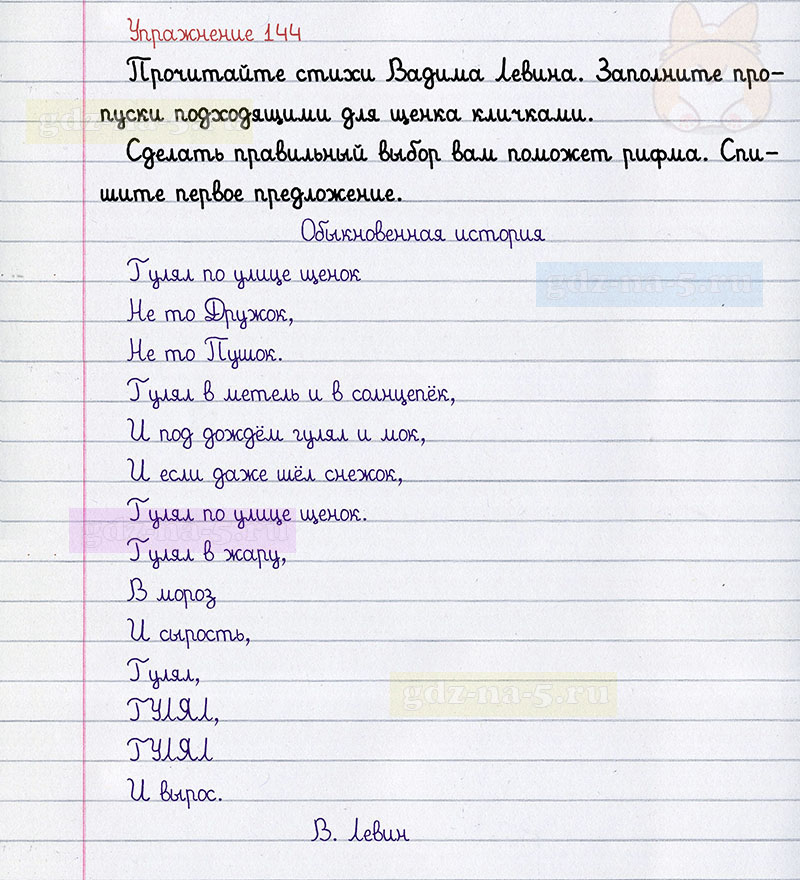 Упражнение 144
Прочитайте стихи Вадима Левина. Заполните про-
пуски подходящими для щенка кличками.
gdz-na-5.ru
Сделать правильный выбор вам поможет рифма. Спи-
шите первое предложение.
Обыкновенная история
Гулял по улице щенок
gdz-na-5.ru
Не то Дружок,
Не то Пушок.
Гулял в метель и в солнцепёк,
И под дождём гулял и мок,
И если даже шёл снежок,
Гулял по улице щенок.
gdz-na-5.ru
Гулял в жару,
В мороз
И сырость,
Гулял,
gdz-na-5.ru
ГУЛЯЛ,
ГУЛЯЛ
И вырос.
В. Левин